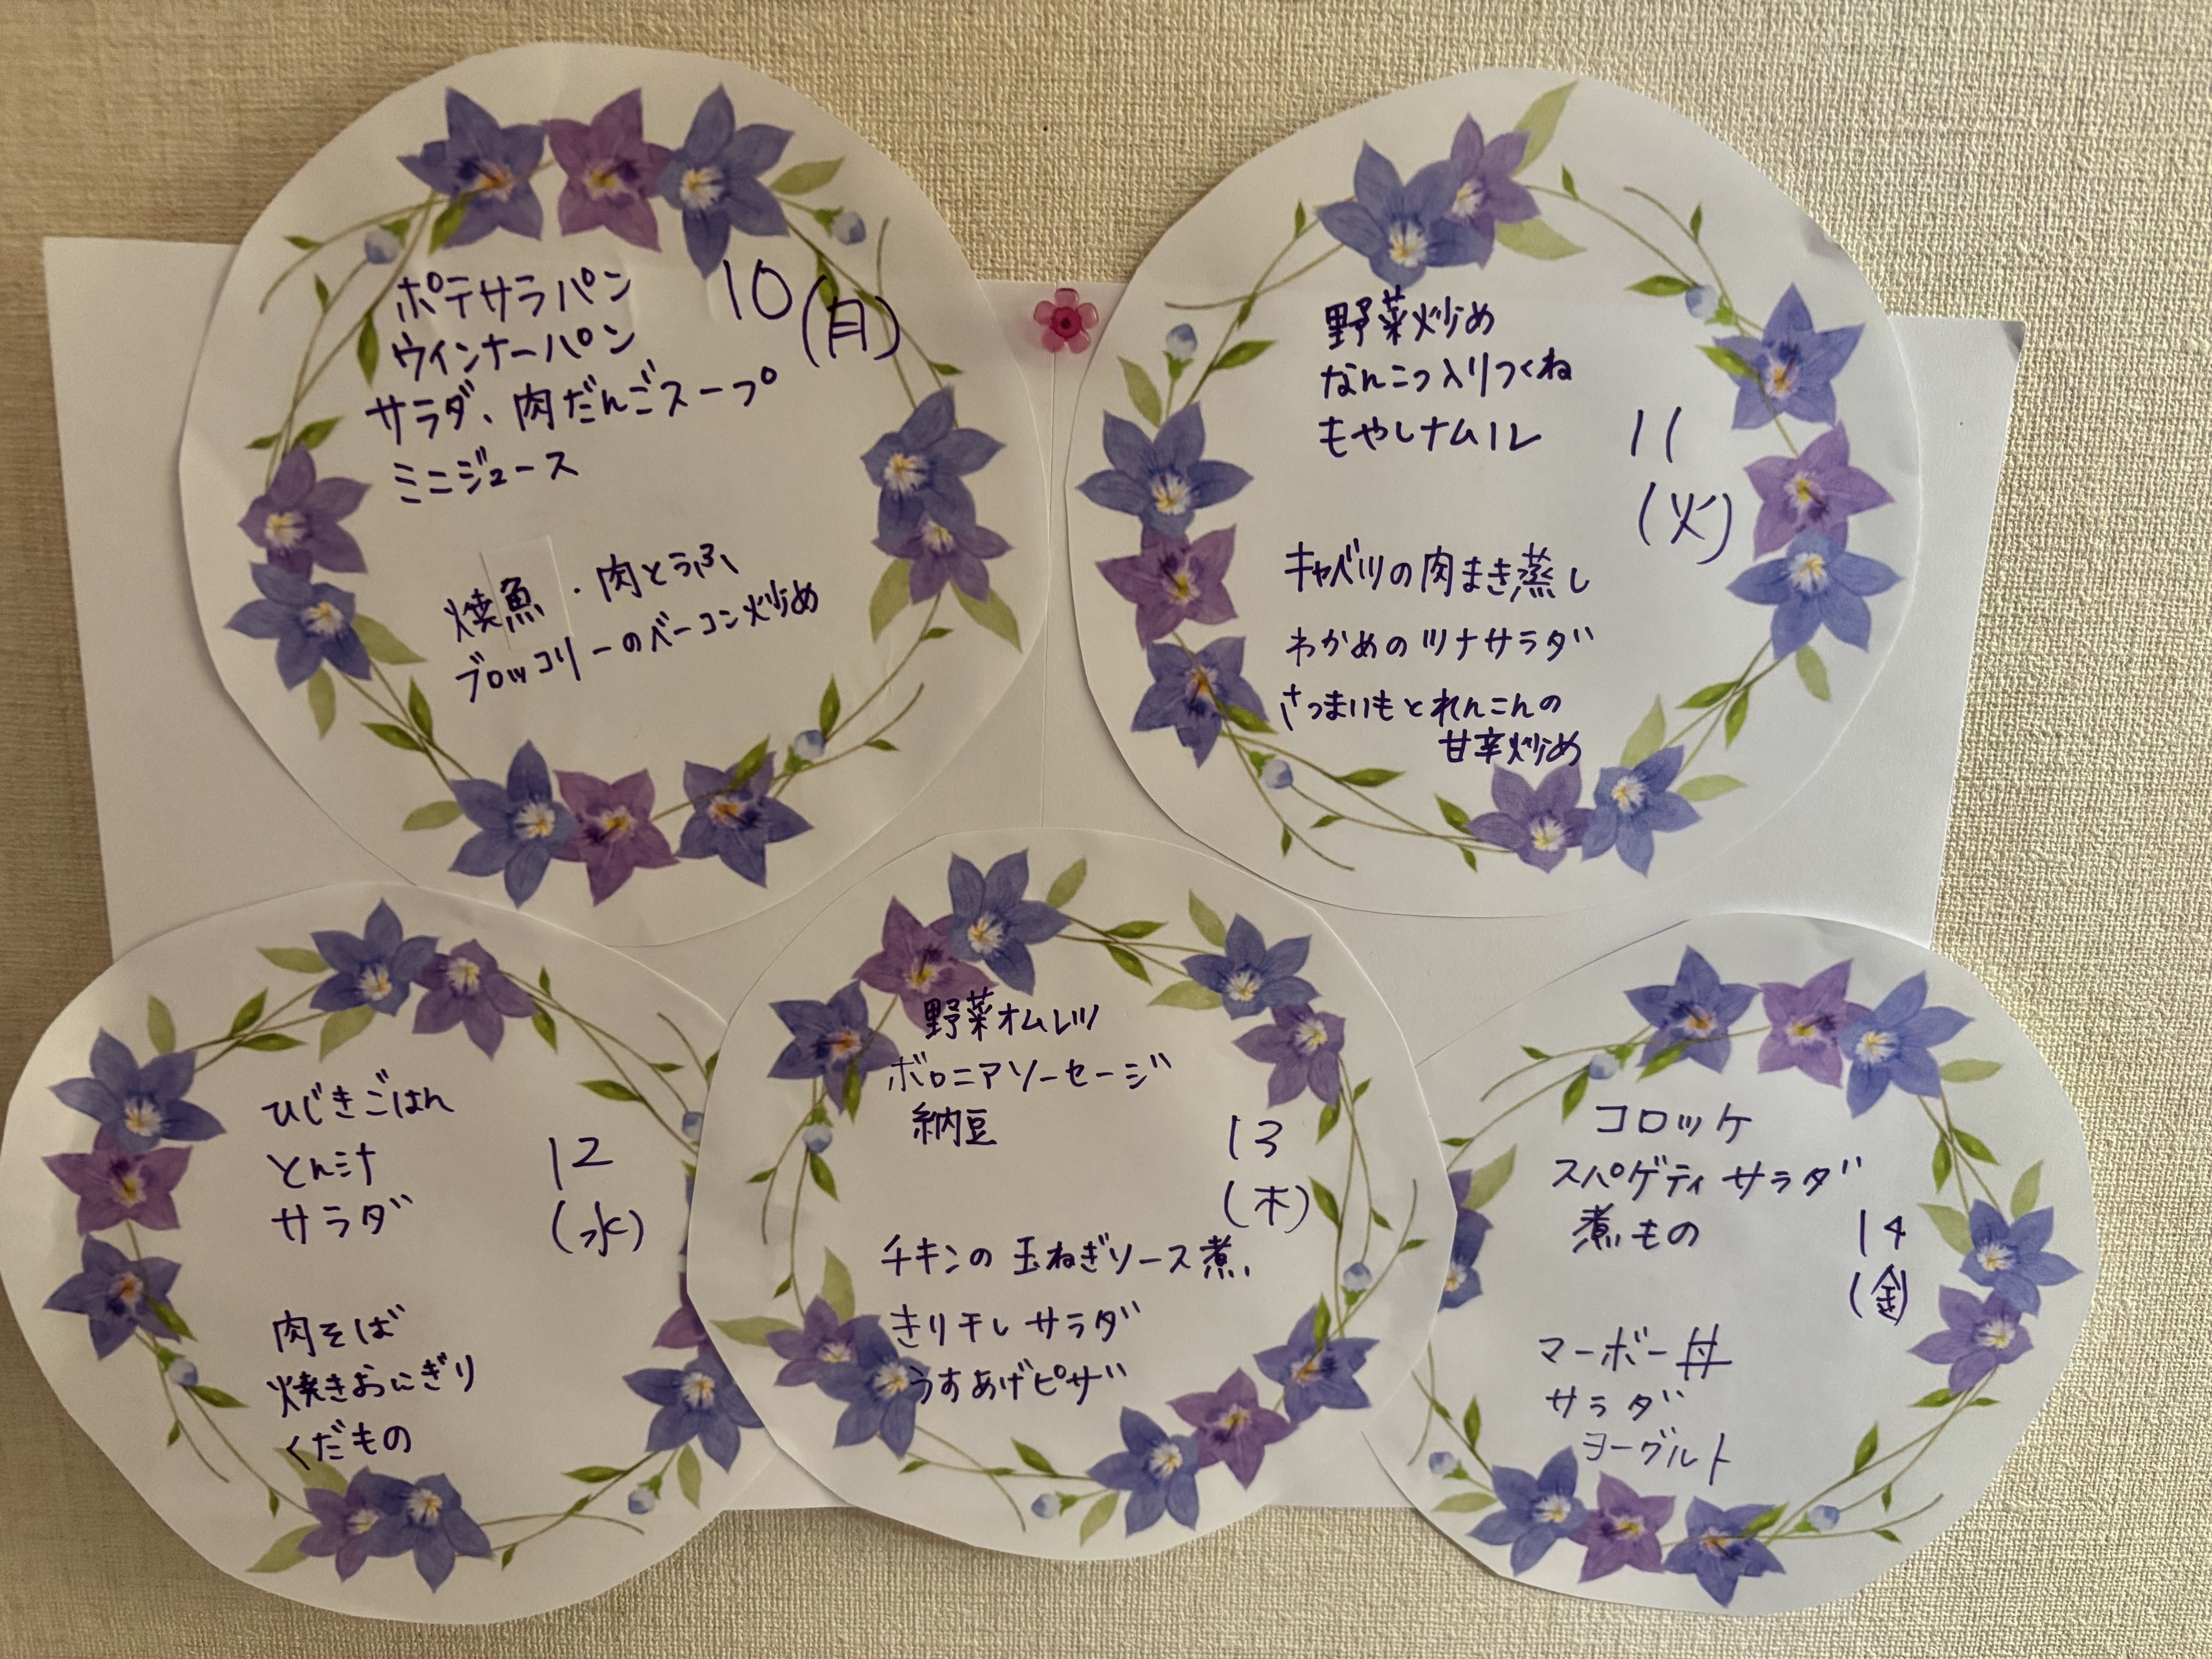 ポテサラパン
ウインナーパン
サラダ、肉だんごスープ
ミニジュース
10
(月)
焼魚・肉とうふ
ブロッコリーのベーコン炒め
野菜炒め
なんこつ入りつくね
もやしナムル
11
(火)
キャベツの肉まき蒸し
わかめのツナサラダ
さつまいもとれんこんの
甘辛炒め
ひじきごはん
とん汁
サラダ
12
(水)
肉そば
焼きおにぎり
くだもの
野菜オムレツ
ボロニアソーセージ
納豆
13
(木)
チキンの玉ねぎソース煮
きり干しサラダ
うすあげピザ
コロッケ
スパゲティサラダ
煮もの
14
(金)
マーボー丼
サラダ
ヨーグルト